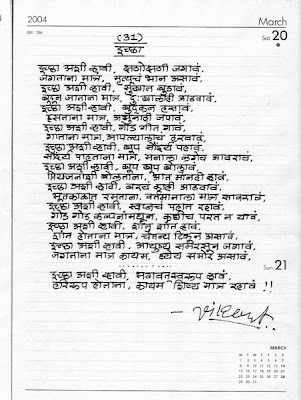 2004
March
080 . 286
Sat 20
(३१)
इच्छा
इच्छा अशी व्हावी, क्षणोक्षणी जगावं.
जगताना मात्र, मृत्यूचं भान असावं.
इच्छा अशी व्हावी, सुखात बुडावं.
बुडून जाताना मात्र, दुःखालाही आठवावं.
इच्छा अशी व्हावी, खुदकून हसावं.
हसताना मात्र, अश्रूंनाही जपावं.
इच्छा अशी व्हावी, गोड गीत गावं.
गाताना मात्र, आपल्यालाच हरवावं.
इच्छा अशी व्हावी, खूप सौंदर्य पहावं.
सौंदर्य पाहताना मात्र, मनाला लगेच आवरावं.
इच्छा अशी व्हावी, खूप खूप बोलावं.
प्रियजनांशी बोलताना, आत मौनही व्हावं.
इच्छा अशी व्हावी, बरचं काही आठवावं.
भूतकाळात रमताना, वर्तमानाला मात्र सावरावं.
इच्छा अशी व्हावी, स्वप्नचं पहात रहावं.
गोड गोड कल्पनांमधून, कधीच परत न यावं.
इच्छा अशी व्हावी, शांत शांत व्हावं.
शांत होताना मात्र, चैतन्य टिकून असावं.
इच्छा अशी व्हावी, आयुष्य समरसून जगावं.
जगताना मात्र कायम, ध्येय समोर असावं.
Sun 21
इच्छा अशी व्हावी, भगवतस्वरूप व्हावं.
हरिरूप होताना, कायम शिष्य मात्र रहावं !!
MARCH
M T W T F S S
1 2 3 4 5 6 7
8 9 10 11 12 13 14
15 16 17 18 19 20 21
22 23 24 25 26 27 28
29 30 31